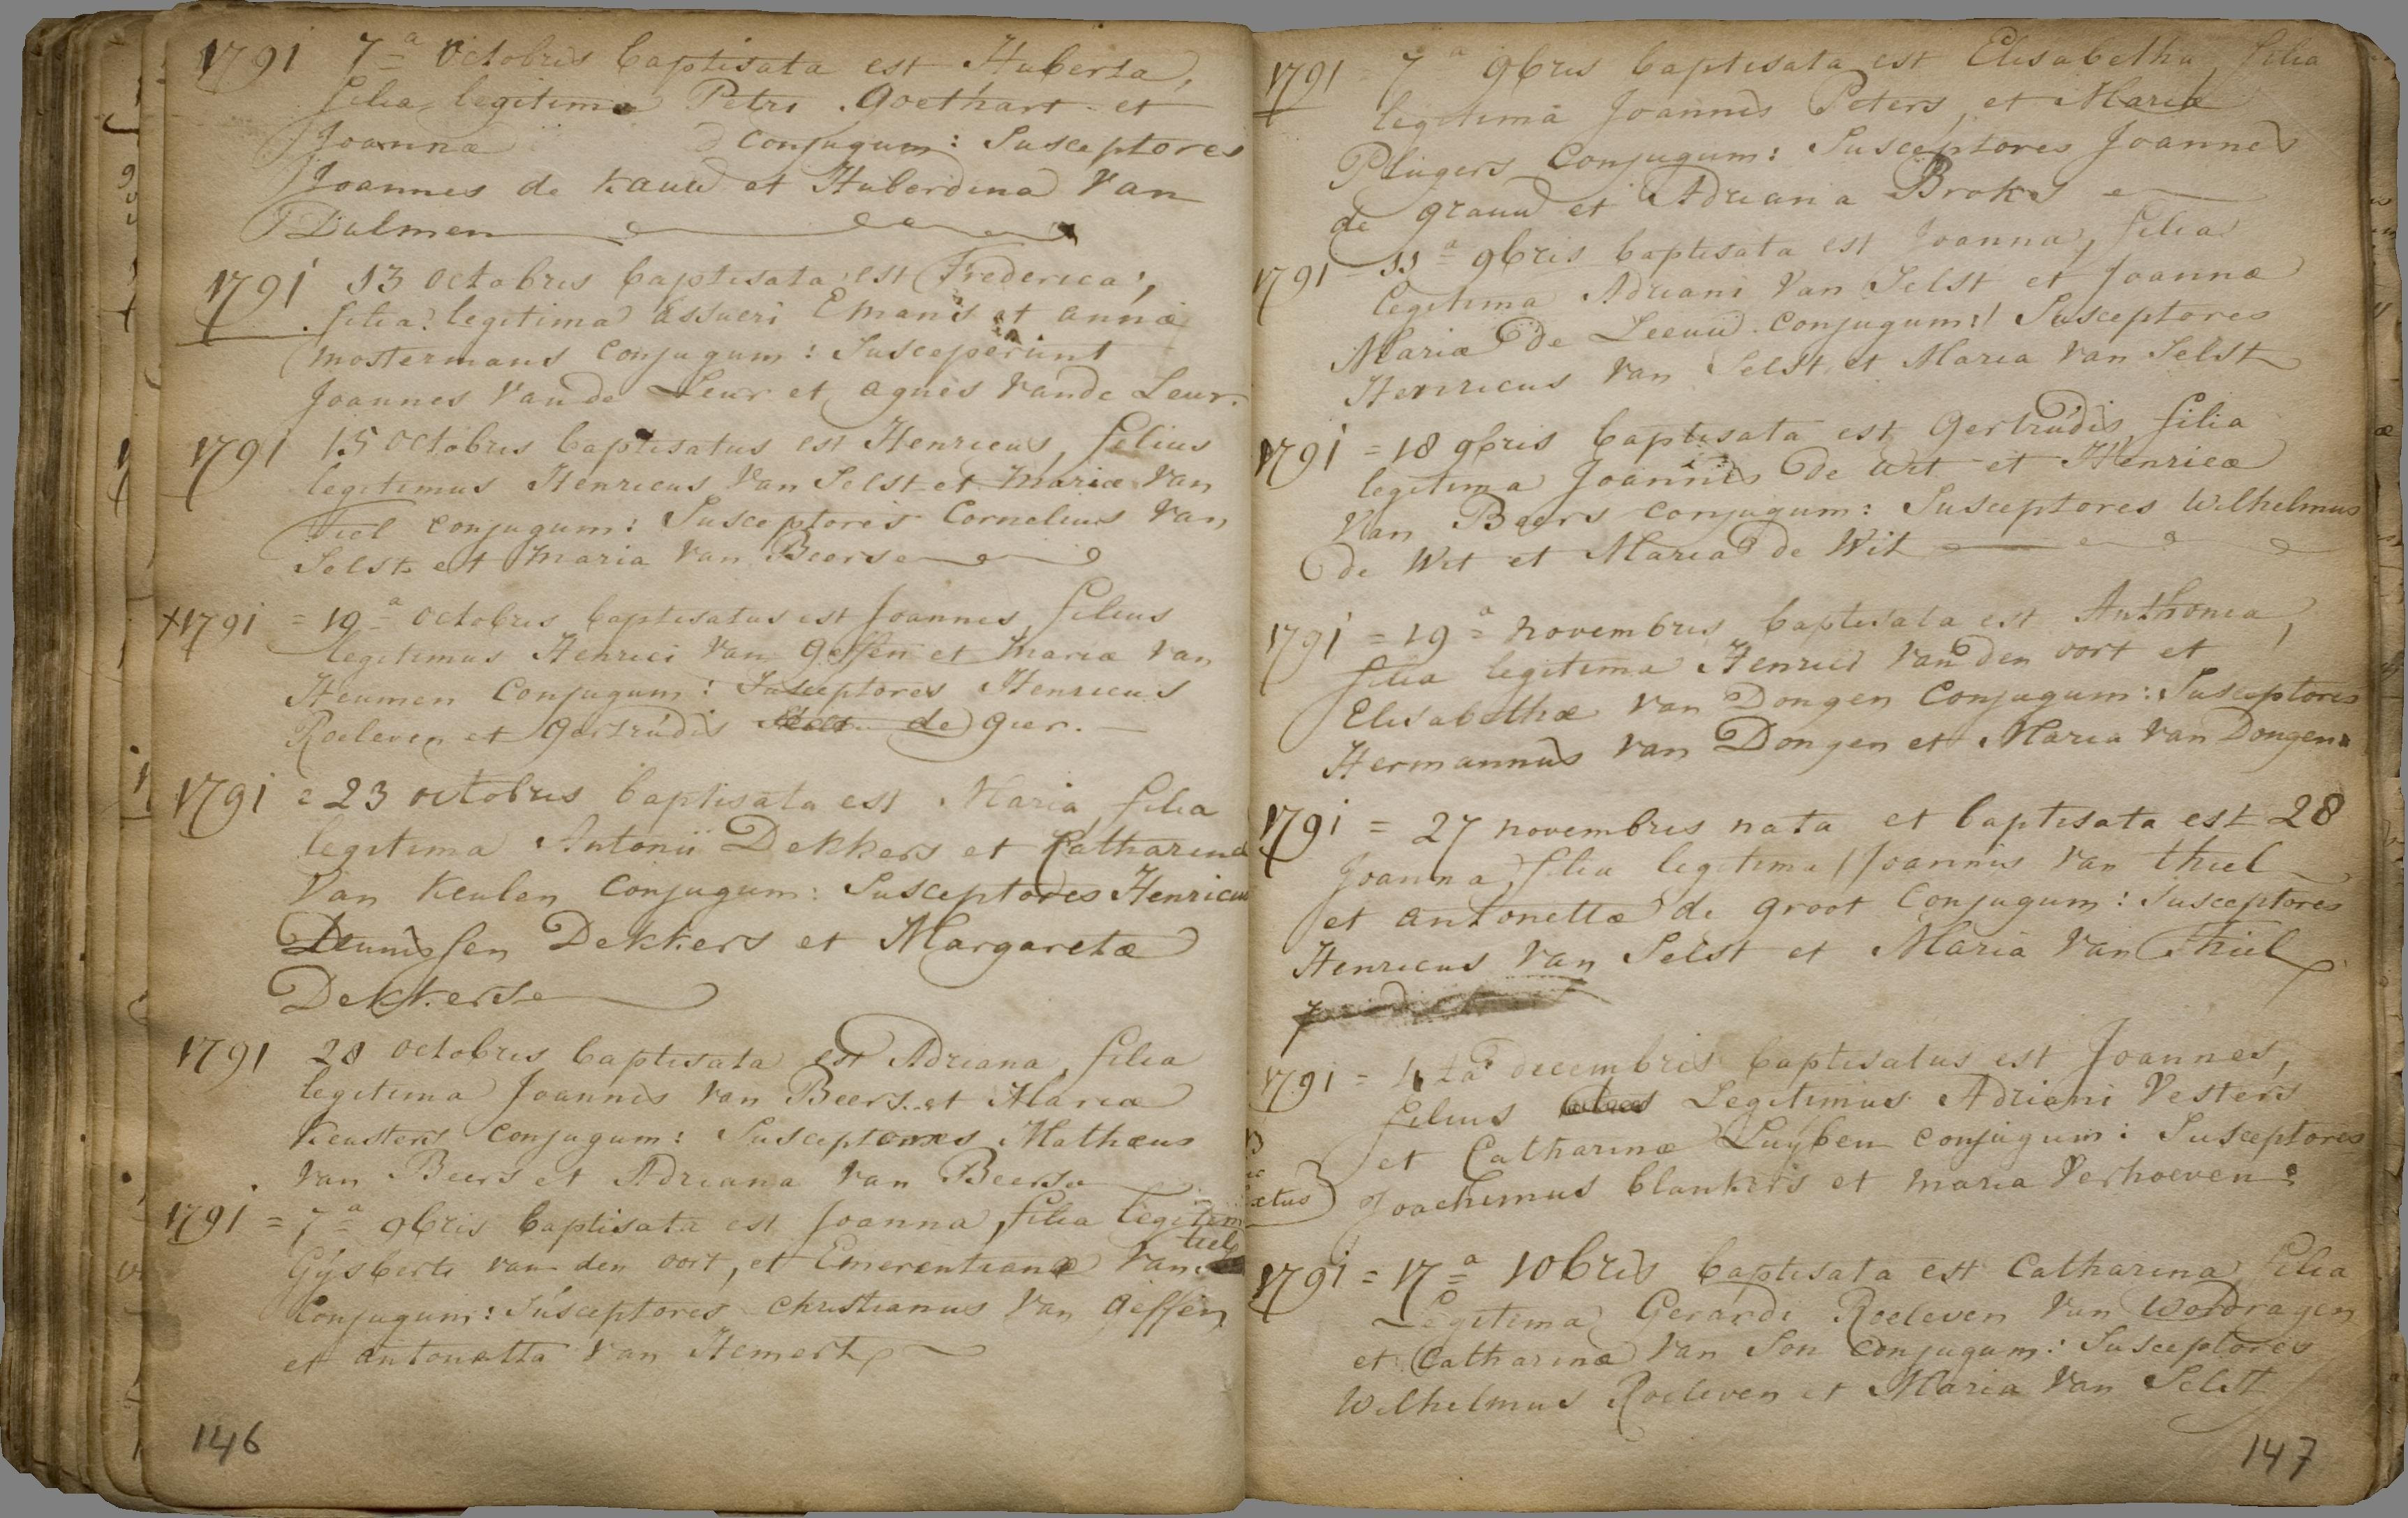 1791 7=a octobris baptisata est Huberta,
filia legitima Petri Goethart et
Joanna conjugum: Susceptores
Joannes de kauw et Huberdina Van
Dalmen
1791 13 octobris baptisata est Frederica,
filia legitima assueri Emanis et annæ
mostermans conjugum: Susceperunt
Joannes Van de Leur et agnes Vande Leur.
1791 15 octobris baptisatus est Henricus, filius
legitimus Henricus Van Selst et mariæ Van
tiel conjugum: Susceptores Cornelius Van
Selst et maria Van Beerse
x1791 = 19=a octobris baptisatus est Joannes filius
legitimus Henrici Van geffen et mariæ Van
Heumen Conjugum: Susceptores Henricus
Roeleven et gertrudis de gier.
1791 = 23 octobris baptisata est Maria, filia
legitima Antonii Dekkers et Catharina
Van Keulen Conjugum: Susceptores Henricus
Deunissen Dekkers et Margaretæ
Dekkerse
1791 28 octobris baptisata est Adriana, filia
legitima Joannis Van Beers et Mariæ
Keusters conjugum: Susceptores Mathæus
Van Beers et Adriana Van Beerse
1791 = 7=a 9bris baptisata est Joanna, filia legitim
tiel
Gÿsberti van den oort, et Emerentianæ Van
Conjugum: Susceptores Christianus Van geffen
et antonetta Van Hemert
146
1791 = 7a 9bris baptisata est Elisabetha, filia
legitima Joannis Peters, et Mariæ
Plugers Conjugum: Susceptores Joannes
de grauw et Adriana Brokes
1791 - 11=a 9bris baptisata est Joanna, filia
legitima Adriani Van Selst et Joannæ
Mariæ de Leeuw conjugum: Susceptores
Henricus Van Selst et Maria Van Selst
1791 = 18 9bris baptisata est Gertrudis filia
legitima Joannis de Wit et Henricæ
Van Beers conjugum: Susceptores Wilhelmus
de Wit et Maria de Wit
1791 = 19=a novembris baptisata est Anthonia,
filia legitima Henrici Van den oort et
Elisabethæ Van Dongen Conjugum: Susceptores
Hermannus Van Dongen et Maria Van Dongen
1791 = 27 novembris nata et baptisata est 28
Joanna, filia legitima Joannis Van thiel
et antonettæ de groot Conjugum: Susceptores
Henricus Van Selst et Maria Van Thiel
1791 = 4ta decembris baptisatus est Joannes,
filius Legitimus Adriani Vesters
et Catharinæ Luÿben conjugum: Susceptores
Joachimus blankers et maria Verhoeven
ætus
1791 = 17=a 10bris baptisata est Catharina filia
Legitima Gerardi Roeleven Van Wordragen
et Catharinæ Van Son Conjugum: Susceptores
Wilhelmus Roeleven et Maria Van Selst
147